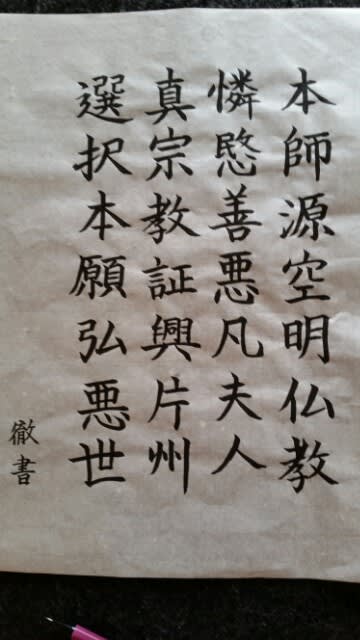 本師源空明仏教
憐愍善悪凡夫人
真宗教証興片州
選択本願弘悪世
徹書